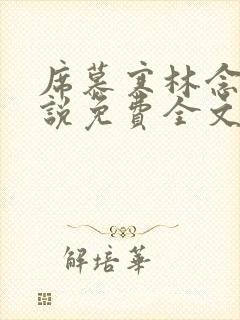 席慕寒林念
說免費全文
解培華